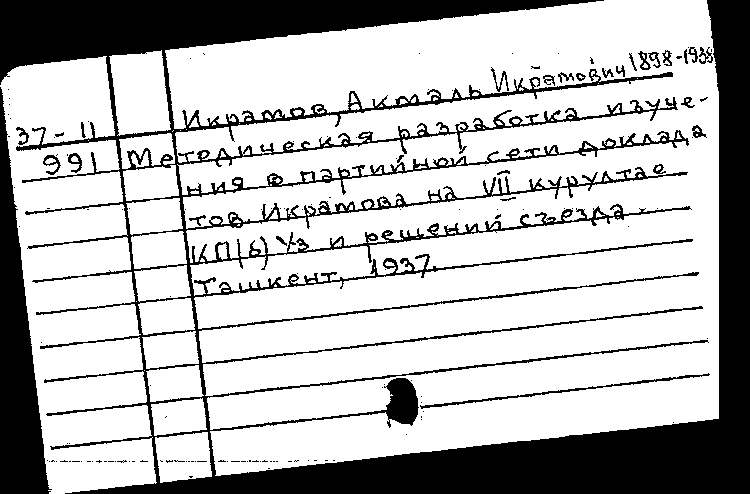 Икрамов, Акмаль Икрамович 1898-1938
37-11
991
Методическая разработка изуче-
ния в партийной сети доклада
тов. Икрамова на VII курултае
КП(б) Уз и решений съезда.
Ташкент, 1937.